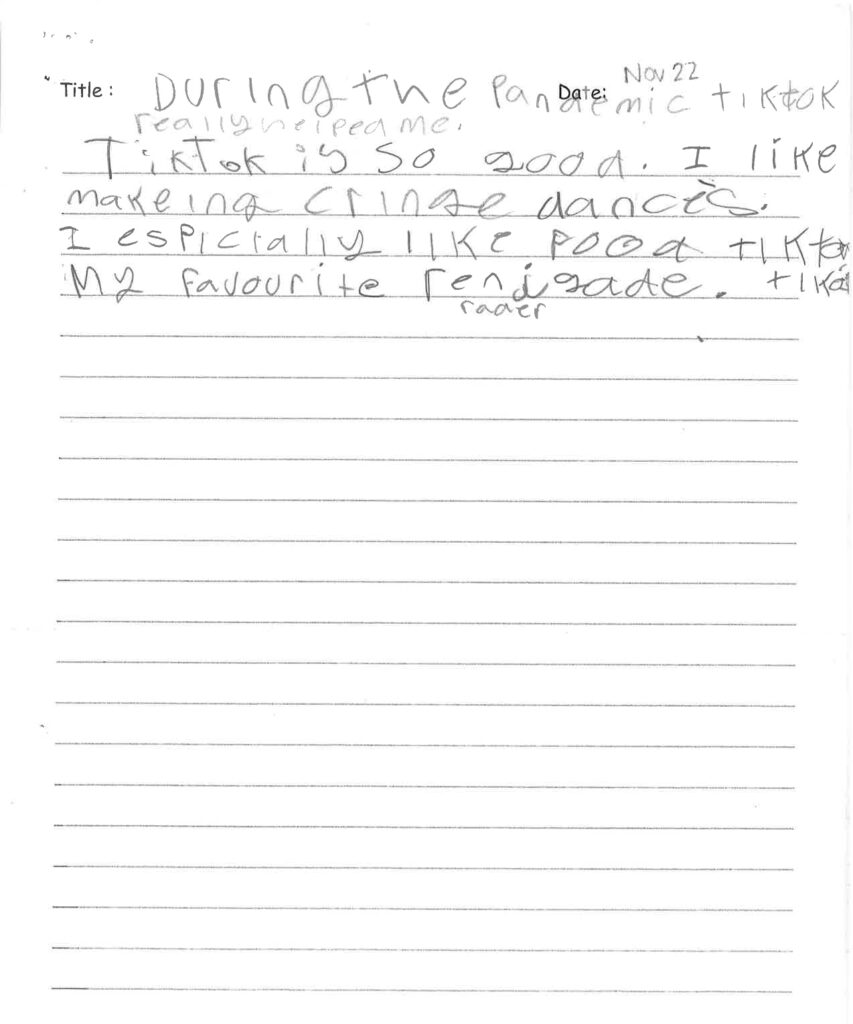 Title : DURING the Pandemic tiktok Date: Nov 22
really helped me.
TikTok is so good. I like
makeing cringe dances.
I espicially like food tiktok
My favourite renigade. tikto
rader